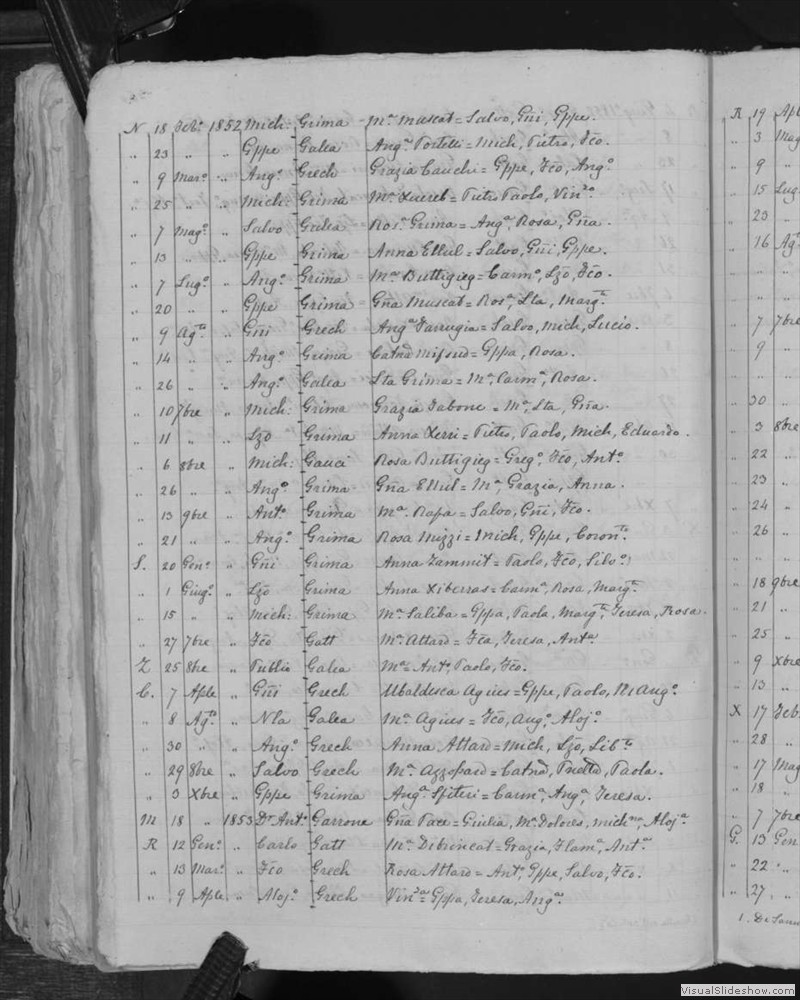 N 18 Feb.º 1852 Mich: Grima Mª Muscat = Salvo, Gñi, Gppe.
„ 23 „ „ Gppe Galea Angª Portelli = Mich, Pietro, Fcõ.
„ 9 Marº „ Angº Grech Grazia Cauchi = Gppe, Fcõ, Angº
„ 25 „ „ Mich: Grima Mª Xuereb = Pietro Paolo, Vinzº
„ 7 Magº „ Salvo Galea Rosª Grima = Angª, Rosa, Gña.
„ 13 „ „ Gppe Grima Anna Ellul = Salvo, Gñi, Gppe.
„ 7 Lugº „ Angº Grima Mª Buttigieg = Carmº, Lzõ, Fcõ.
„ 20 „ „ Gppe Grima Gña Muscat = Rosª, Lta, Margta
„ 9 Agto „ Gñi Grech Angª Farrugia = Salvo, Mich, Lucio.
„ 14 „ „ Angº Grima Catna Mifsud = Gppa, Rosa.
„ 26 „ „ Angº Galea Lta Grima = Mª Carmª, Rosa.
„ 10 7bre „ Mich: Grima Grazia Tabone = Mª, Lta, Gña.
„ 11 „ „ Lzõ Grima Anna Xerri = Pietro, Paolo, Mich, Eduardo.
„ 6 8bre „ Mich: Gauci Rosa Buttigieg = Gregº, Fcõ, Antº
„ 26 „ „ Angº Grima Gña Ellul = Mª, Grazia, Anna.
„ 13 9bre „ Antº Grima Mª Rapa = Salvo, Gñi, Fcõ.
„ 21 „ „ Angº Grima Rosa Mizzi = Mich, Gppe, Coronta
S. 20 Genº „ Gñi Grima Anna Zammit = Paolo, Fcõ, Silvº
„ 1 Giugº „ Lzõ Grima Anna Xiberras = Carmª, Rosa, Margta
„ 15 „ „ Mich: Grima Mª Saliba = Gppa, Paola, Margta, Teresa, Rosa.
„ 27 7bre „ Fcõ Gatt Mª Attard = Fcã, Teresa, Antª
Z 25 8bre „ Publio Galea Mª = Antº, Paolo, Fcõ.
C. 7 Aple „ Gñi Grech Ubaldesca Agius = Gppe, Paolo, M Angº
„ 8 Agto „ Nla Galea Mª Agius = Fcõ, Angº, Alojº
„ 30 „ „ Angº Grech Anna Attard = Mich, Lzõ, Libta
„ 29 8bre „ Salvo Grech Mª Azzopard = Catna, Paola.
„ 3 Xbre „ Gppe Grima Angª Spiteri = Carmª, Angª, Teresa.
M 18 „ 1853 Dr Antº Garrone Gña Pace = Giulia, Mª Dolores, Michna, Alojª
R 12 Genº „ Carlo Gatt Mª Debrincat = Grazia, Antª
„ 13 Marº „ Fcõ Grech Rosa Attard = Antº, Gppe, Salvo, Fcõ.
„ 9 Aple „ Alojº Grech Vinza = Gppa, Teresa, Angª
R 19 Apl
„ 3 Mag
„ 9 „
„ 15 Lug
„ 23 „
„ 16 Agº
„ „
„ „
„ 7 7bre
„ 9 „
„ „
„ 30 „
„ 3 8bre
„ 22 „
„ 23 „
„ 24 „
„ 26 „
„ „ „
„ 18 9bre
„ 21 „
„ 25 „
„ 9 Xbre
„ 13 „
X 17 Feb.
„ 28 „
„ 17 Mag
„ 18 „
„ 7 7bre
G. 13 Gen
„ 22 „
„ 27 „
VisualSlideshow.com